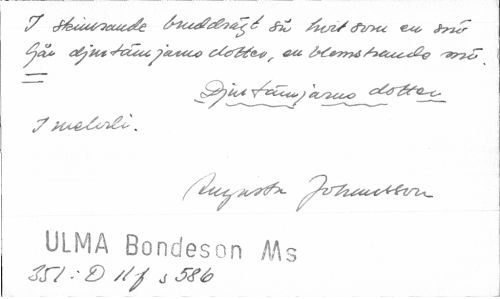 I skimrande bruddrägt så hvit som en snö
Går djustänujarns dotter, en blomstrande mö.
Djustänujarns dotter
I melodi.
Augusta Johansson
ULMA Bondeson Ms
351:D II f s 586